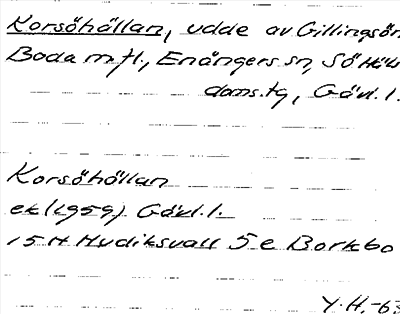 Korsöhällan, udde av Gillingsön
Boda m fl., Enångers sn, Sö Häl
doms. tg, Gävl. l.
Korsöhällan
ek (1959) Gävl. l.
15 H Hudiksvall 5 e Borkbo
Y. H. -63